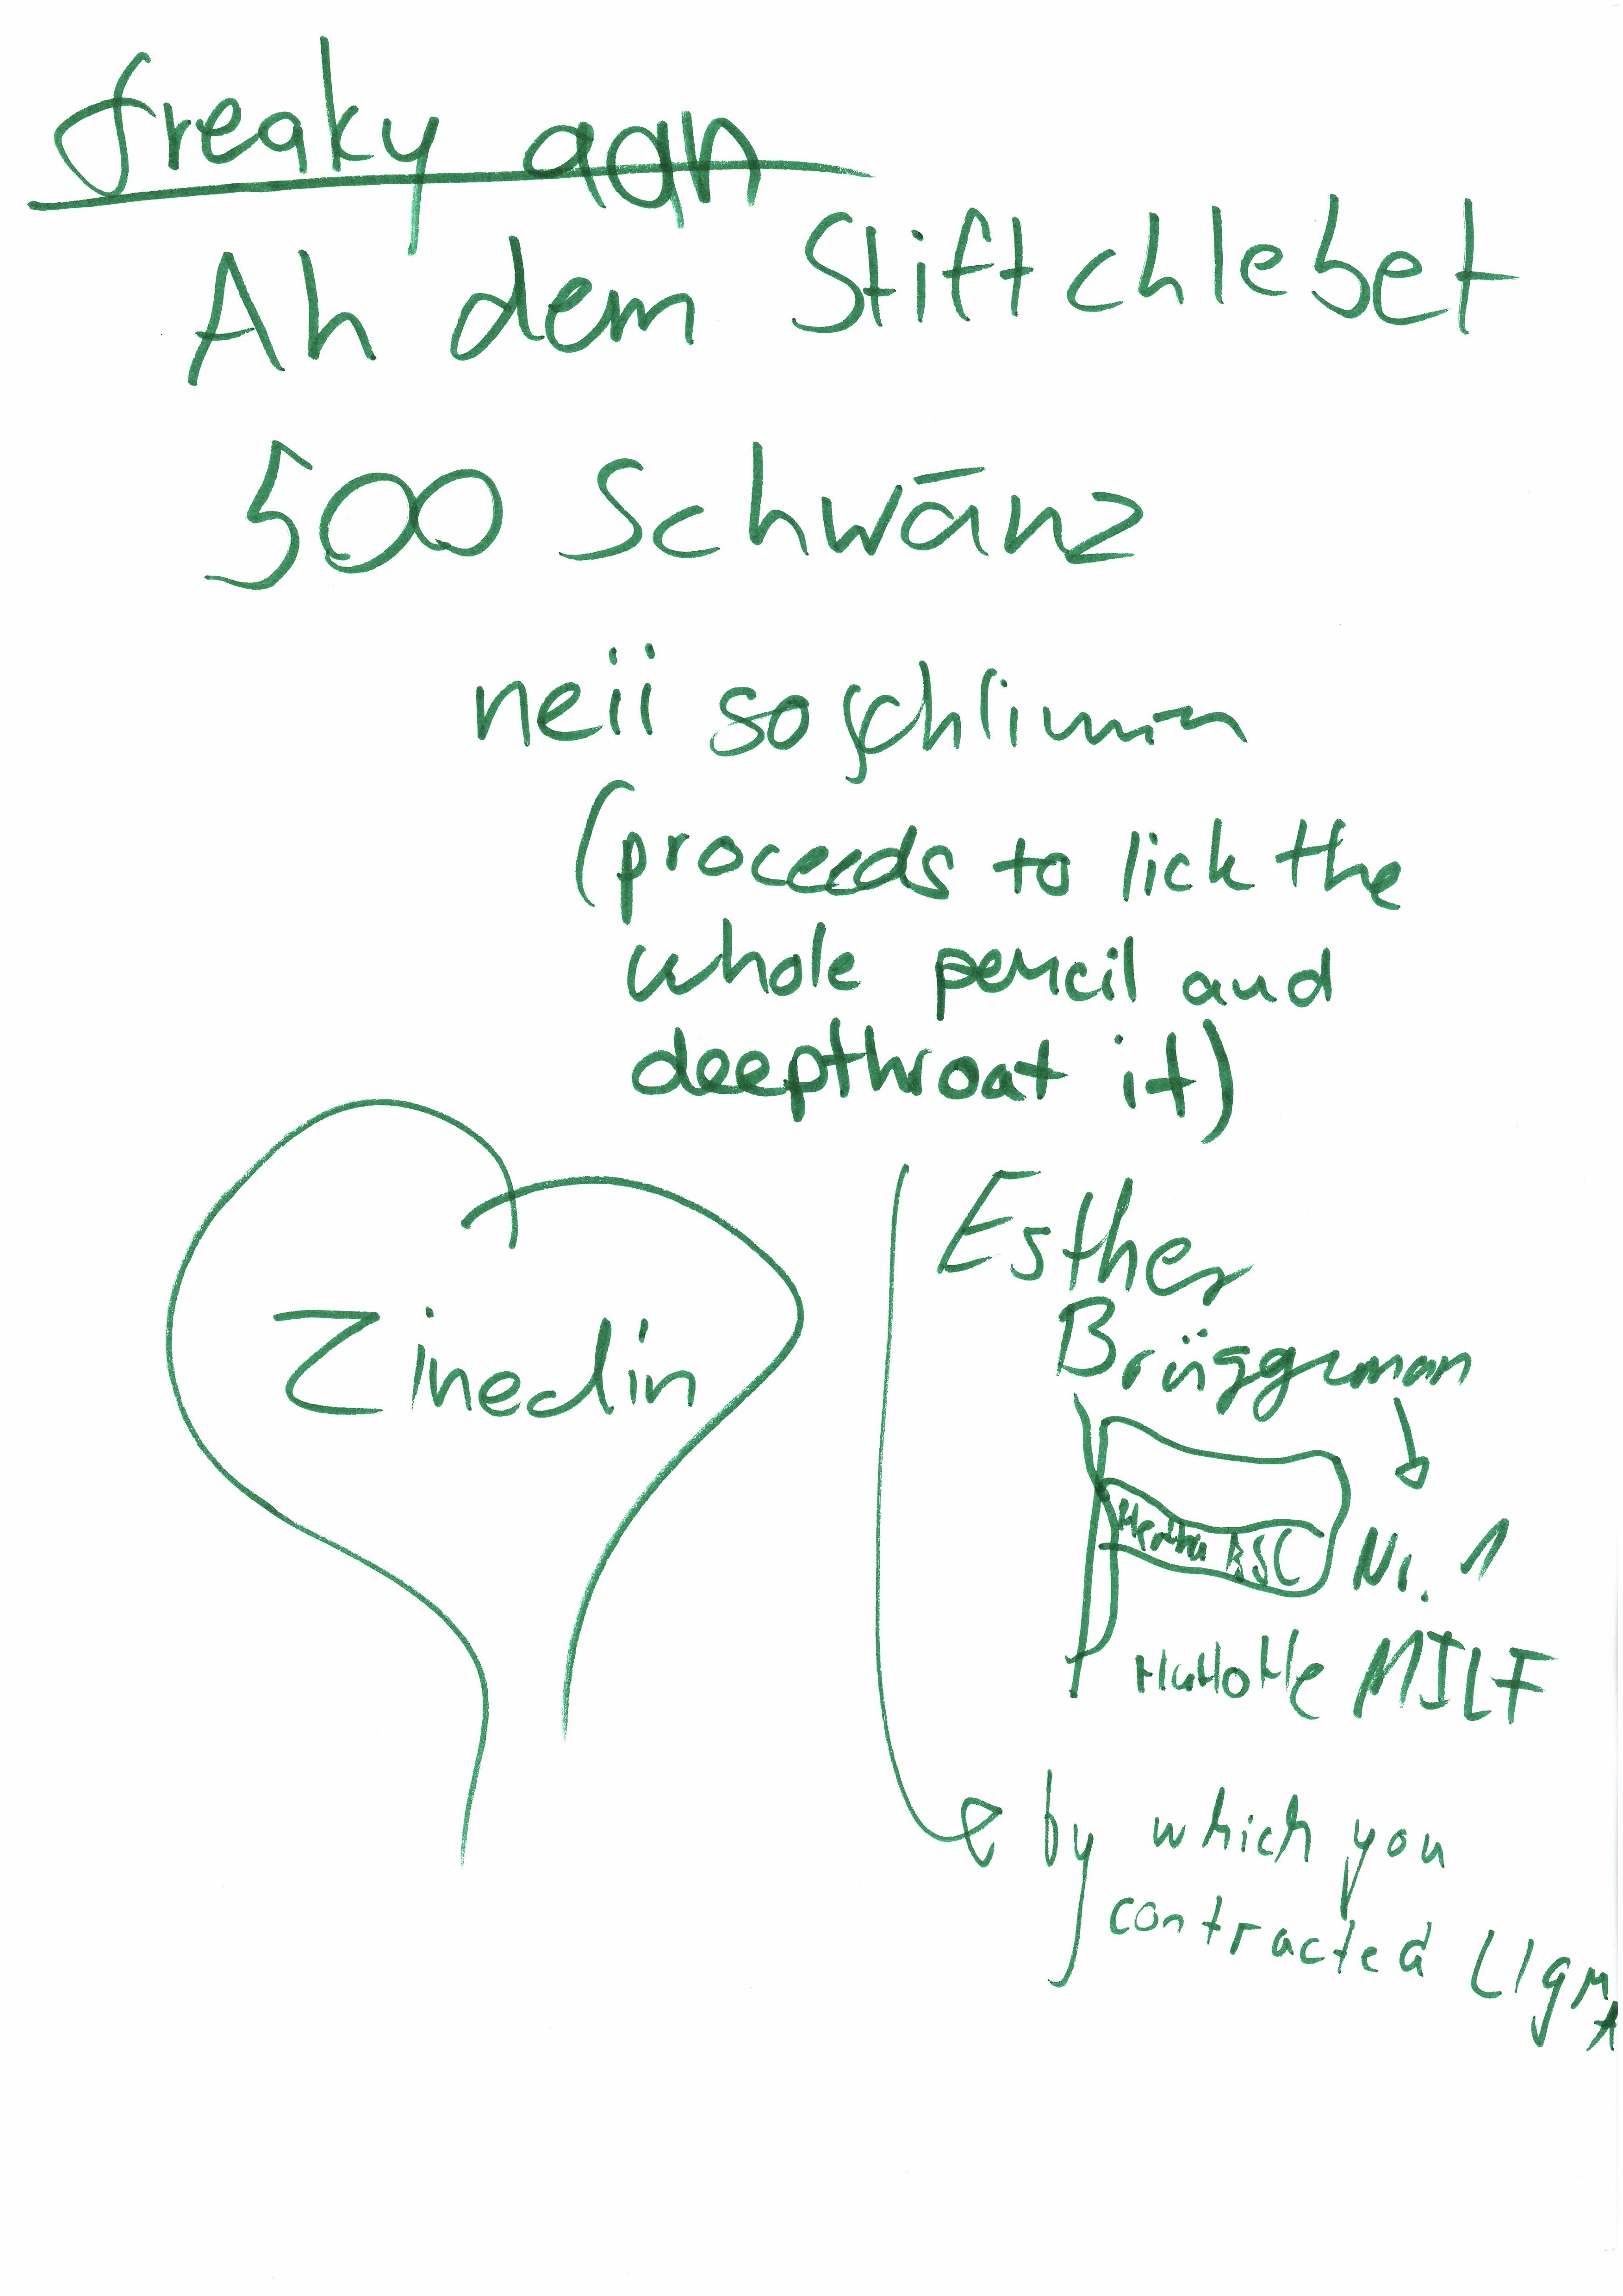 freaky aan
Ah dem Stift chlebet
500 Schwänz
neii so schlimm
(proceeds to lick the
whole pencil and
deepthroat it)
Zinedin
Esther
Brüggeman
RSC
Nr. 1
MILF
by which you
contracted LIgMA